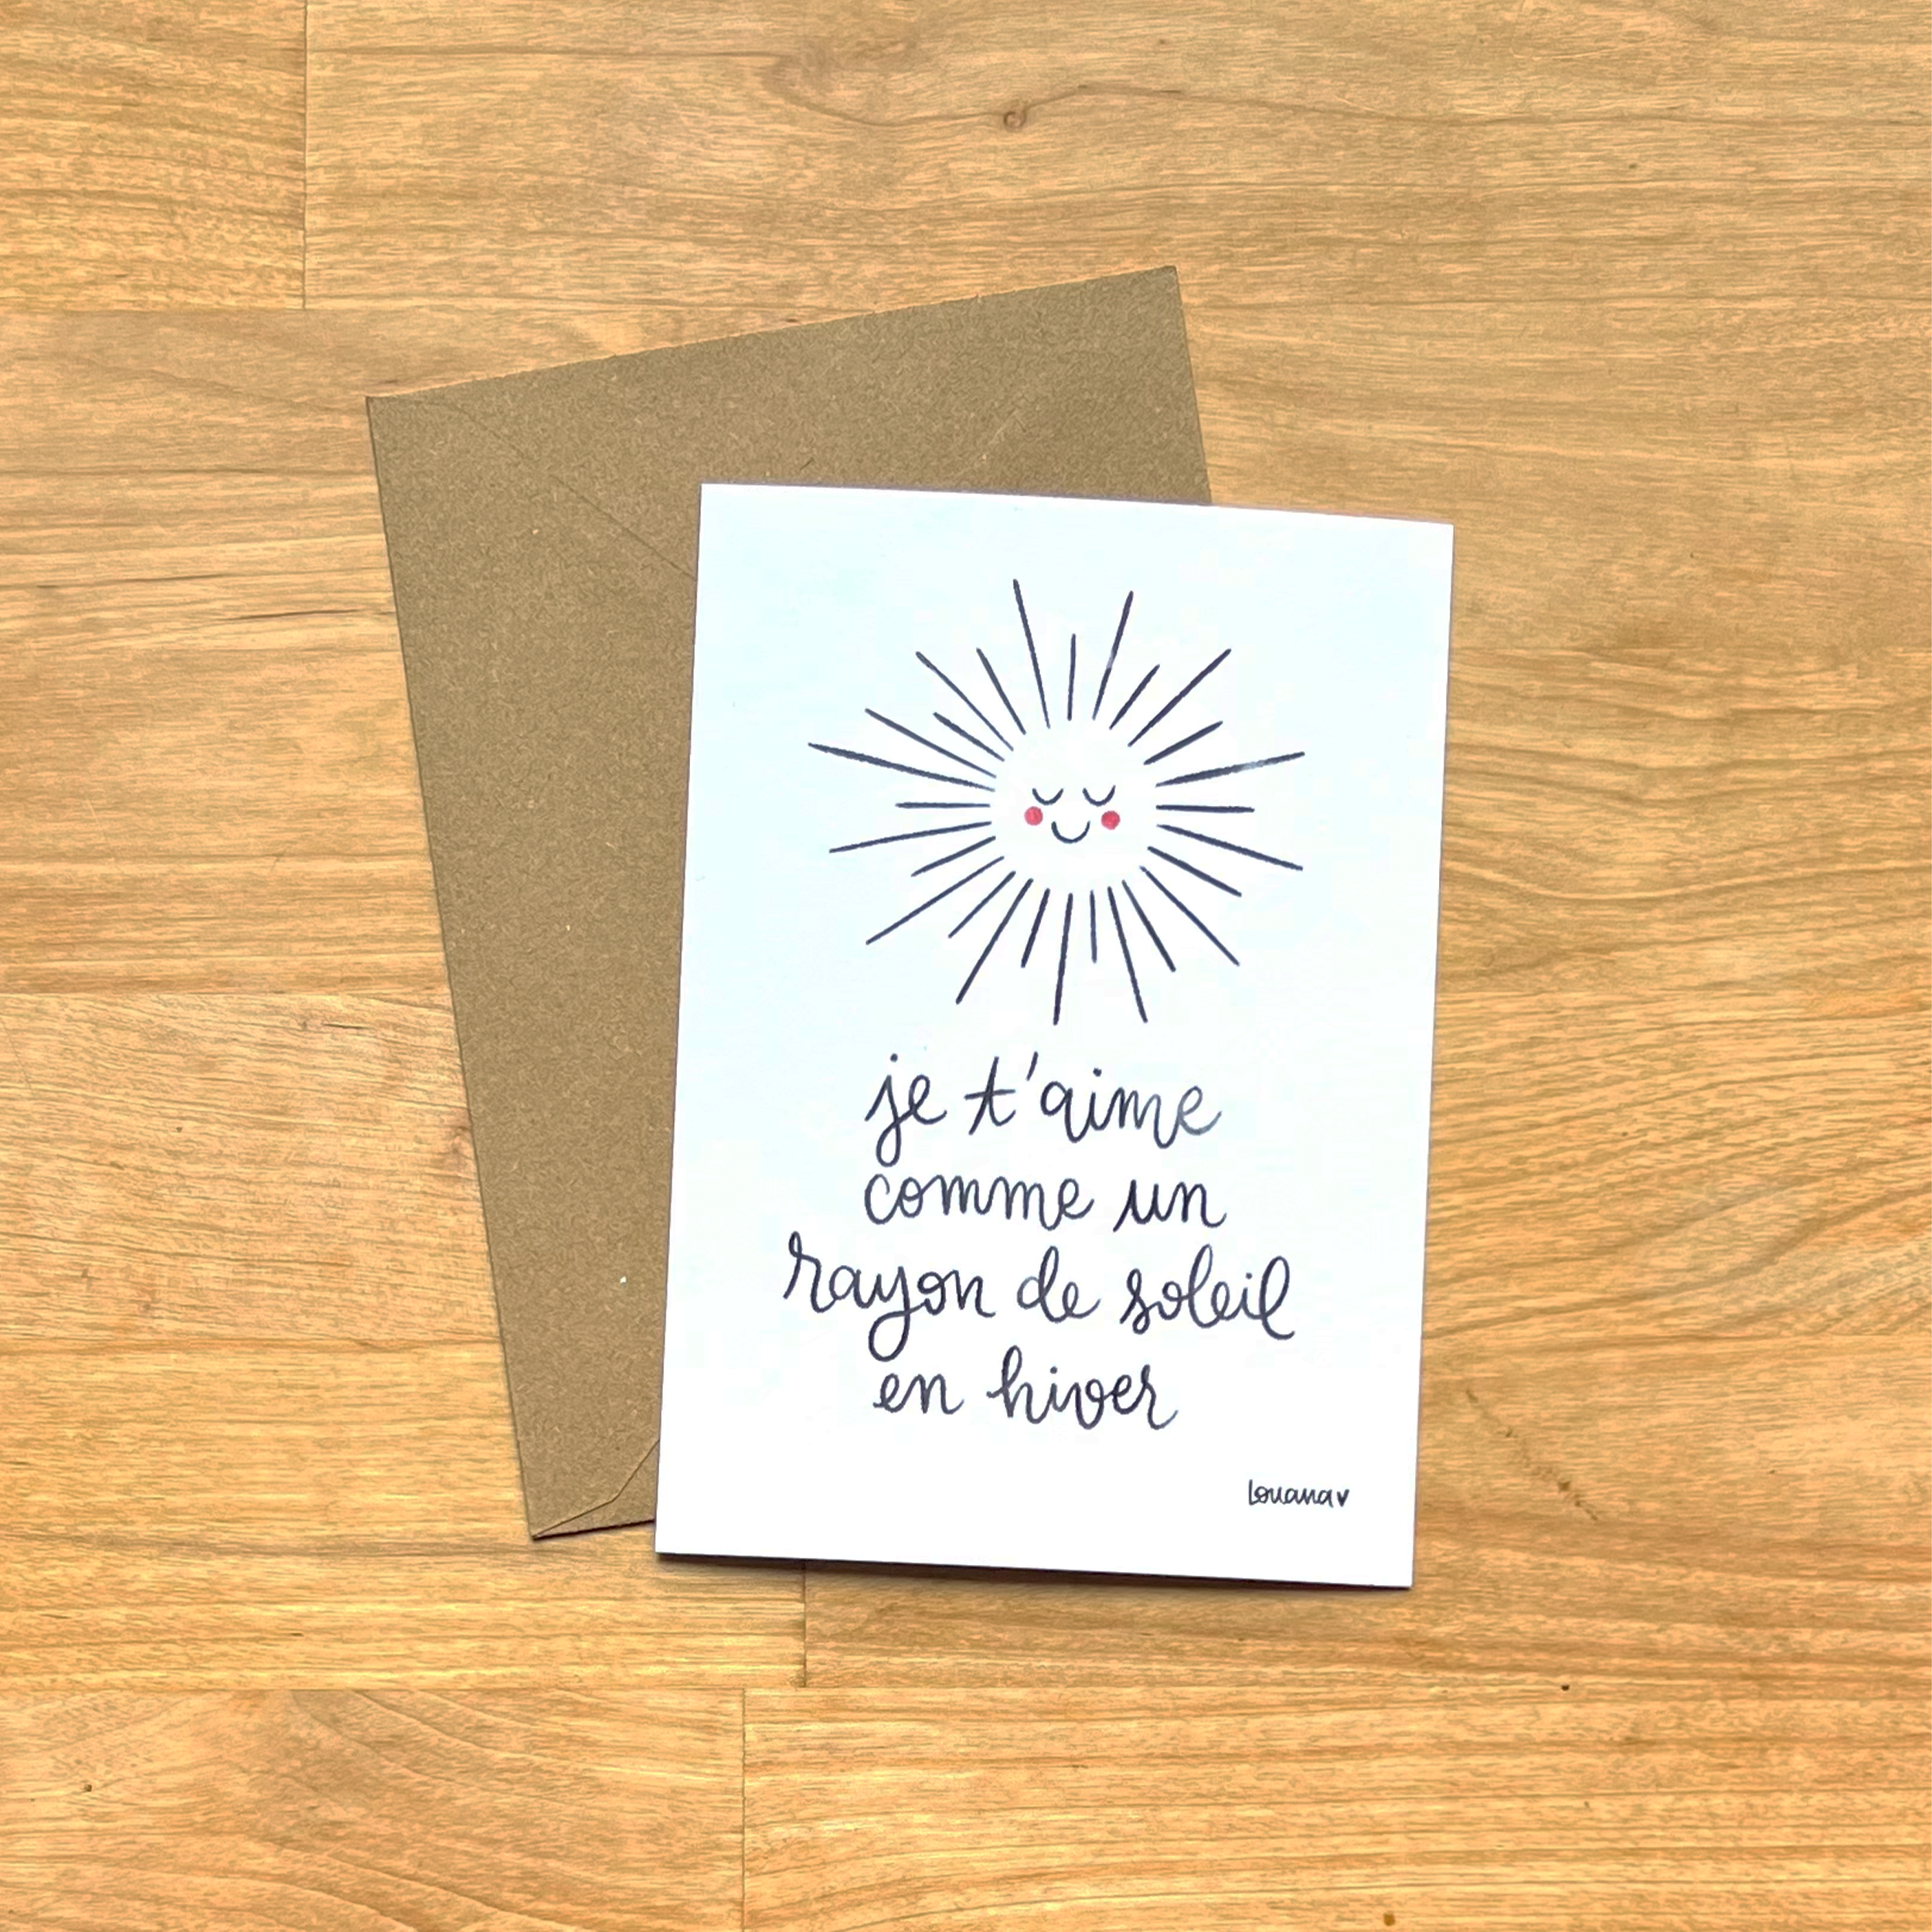 je t'aime
comme un
rayon de soleil
en hiver
Louana♥